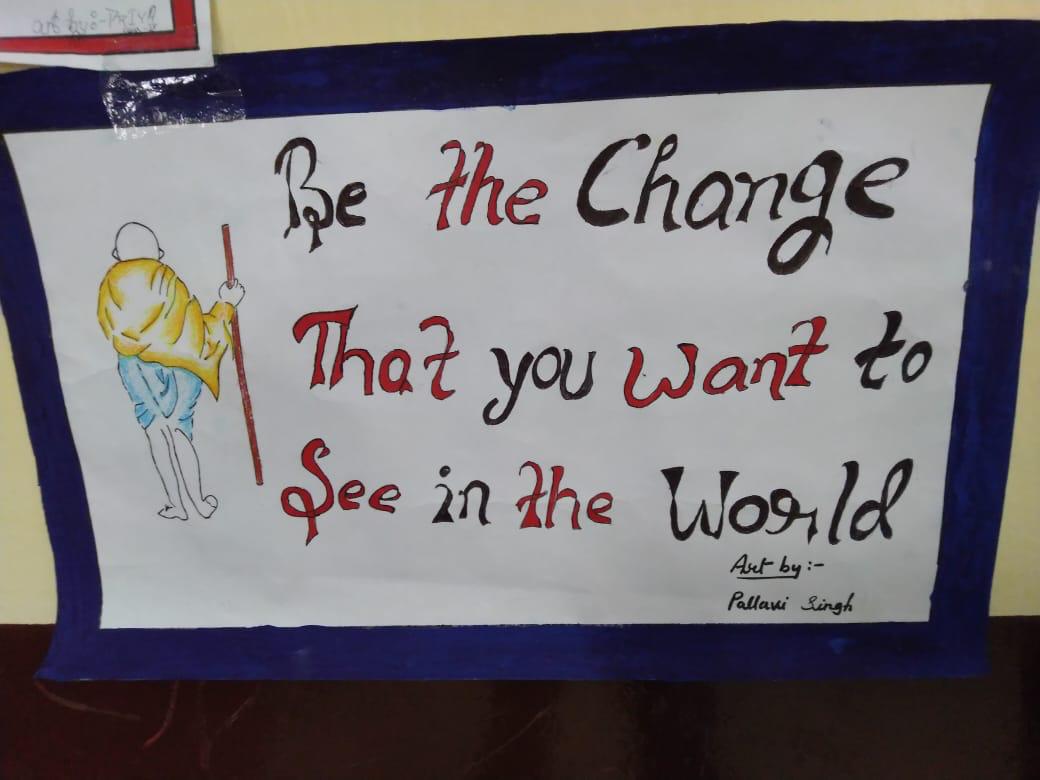 art by:- PRIYA
Be the Change
That you want to
See in the World
Art by:-
Pallavi Singh